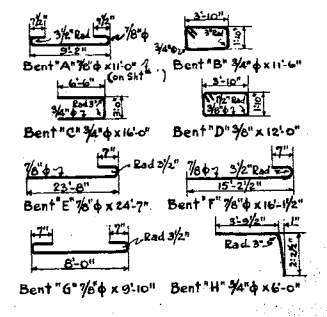 7½" 7½"
3½" Rad 7/8"ϕ
9'-2"
Bent "A" 7/8"ϕ x 11'-0"
(on Sht
3'-10"
3" Rad
3/4"ϕ
1'-10"
Bent "B" 3/4"ϕ x 11'-6"
6'-6"
Rad 3"
3/4"ϕ
3'-0"
Bent "C" 3/4"ϕ x 16'-0"
3'-10"
1½" Rad
3/8"ϕ
1'-10"
Bent "D" 3/8"ϕ x 12'-0"
7"
7/8"ϕ Rad 3½"
23'-8"
Bent "E" 7/8"ϕ x 24'-7"
7"
7/8"ϕ 3½" Rad
15'-2½"
Bent "F" 7/8"ϕ x 16'-1½"
7" 7"
Rad 3½"
8'-0"
Bent "G" 7/8"ϕ x 9'-10"
3'-9½" 1"
Rad 3"
2'-2½"
Bent "H" 3/4"ϕ x 6'-0"